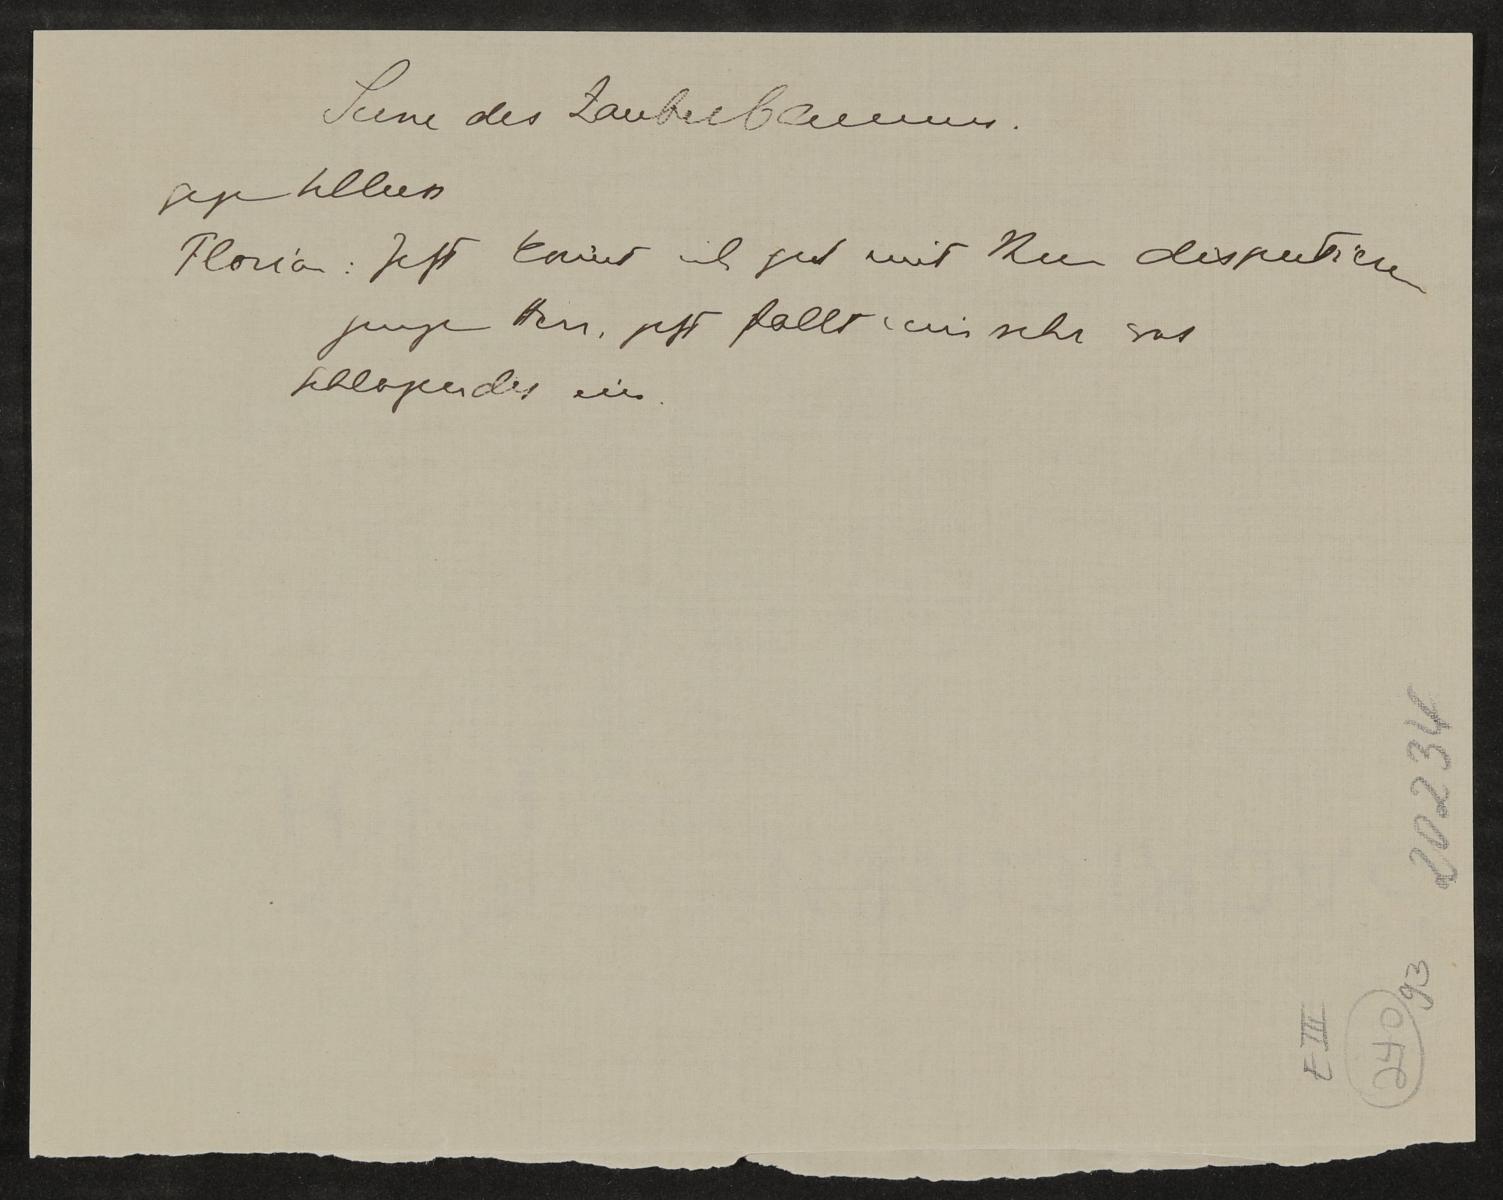 Scene des Zauberbaumes.
gegen Schluss
Florian: Jetzt könnt ich gut mit Ihnen disputieren
junger Herr, jetzt fallt mir sehr was
schlagendes ein.
20234
E III
240 93